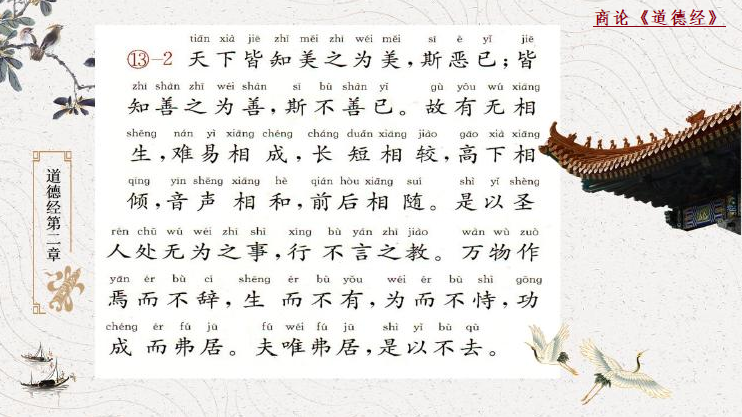 商论《道德经》
道德经第二章
tiān xià jiē zhī měi zhī wéi měi sī è yǐ jiē
⑬-2 天下皆知美之为美，斯恶已；皆
zhī shàn zhī wéi shàn sī bù shàn yǐ gù yǒu wú xiāng
知善之为善，斯不善已。故有无相
shēng nán yì xiāng chéng cháng duǎn xiāng jiào gāo xià xiāng
生，难易相成，长短相较，高下相
qīng yīn shēng xiāng hè qián hòu xiāng suí shì yǐ shèng
倾，音声相和，前后相随。是以圣
rén chǔ wú wéi zhī shì xíng bù yán zhī jiào wàn wù zuò
人处无为之事，行不言之教。万物作
yān ér bù cí shēng ér bù yǒu wéi ér bù shì gōng
焉而不辞，生而不有，为而不恃，功
chéng ér fú jū fú wéi fú jū shì yǐ bù qù
成而弗居。夫唯弗居，是以不去。